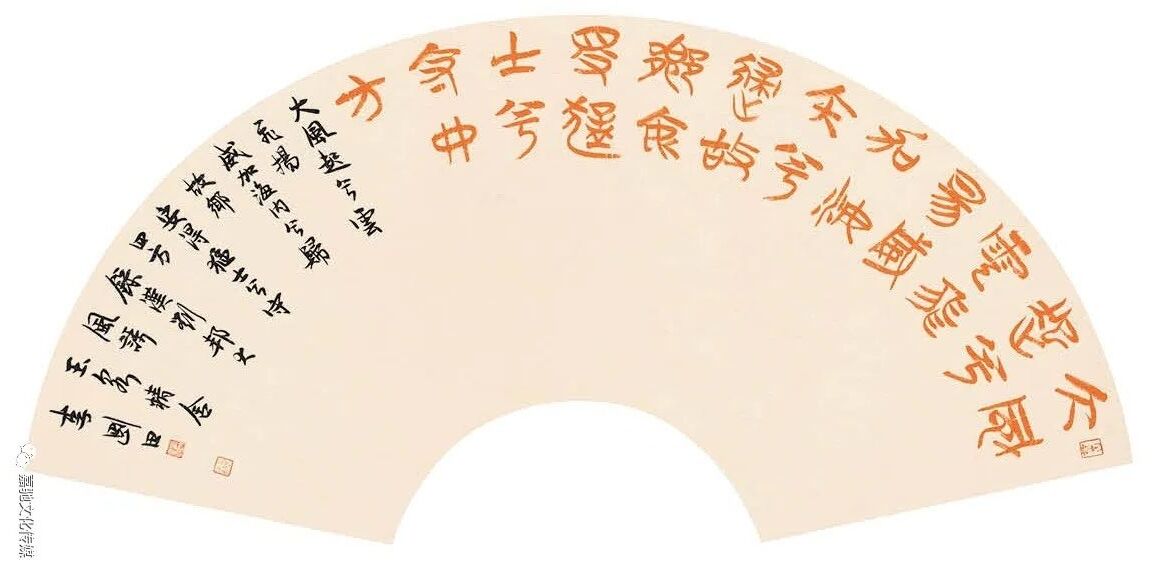 大風
起兮
雲飛
揚威
加海
内兮
歸故
鄉安
得猛
士兮
守四
方
大風起兮雲
飛揚
威加海内兮歸
故鄉
安得猛士兮守
四方
錄漢劉邦大
風詩
玉 精舍
李剛田
文化传媒